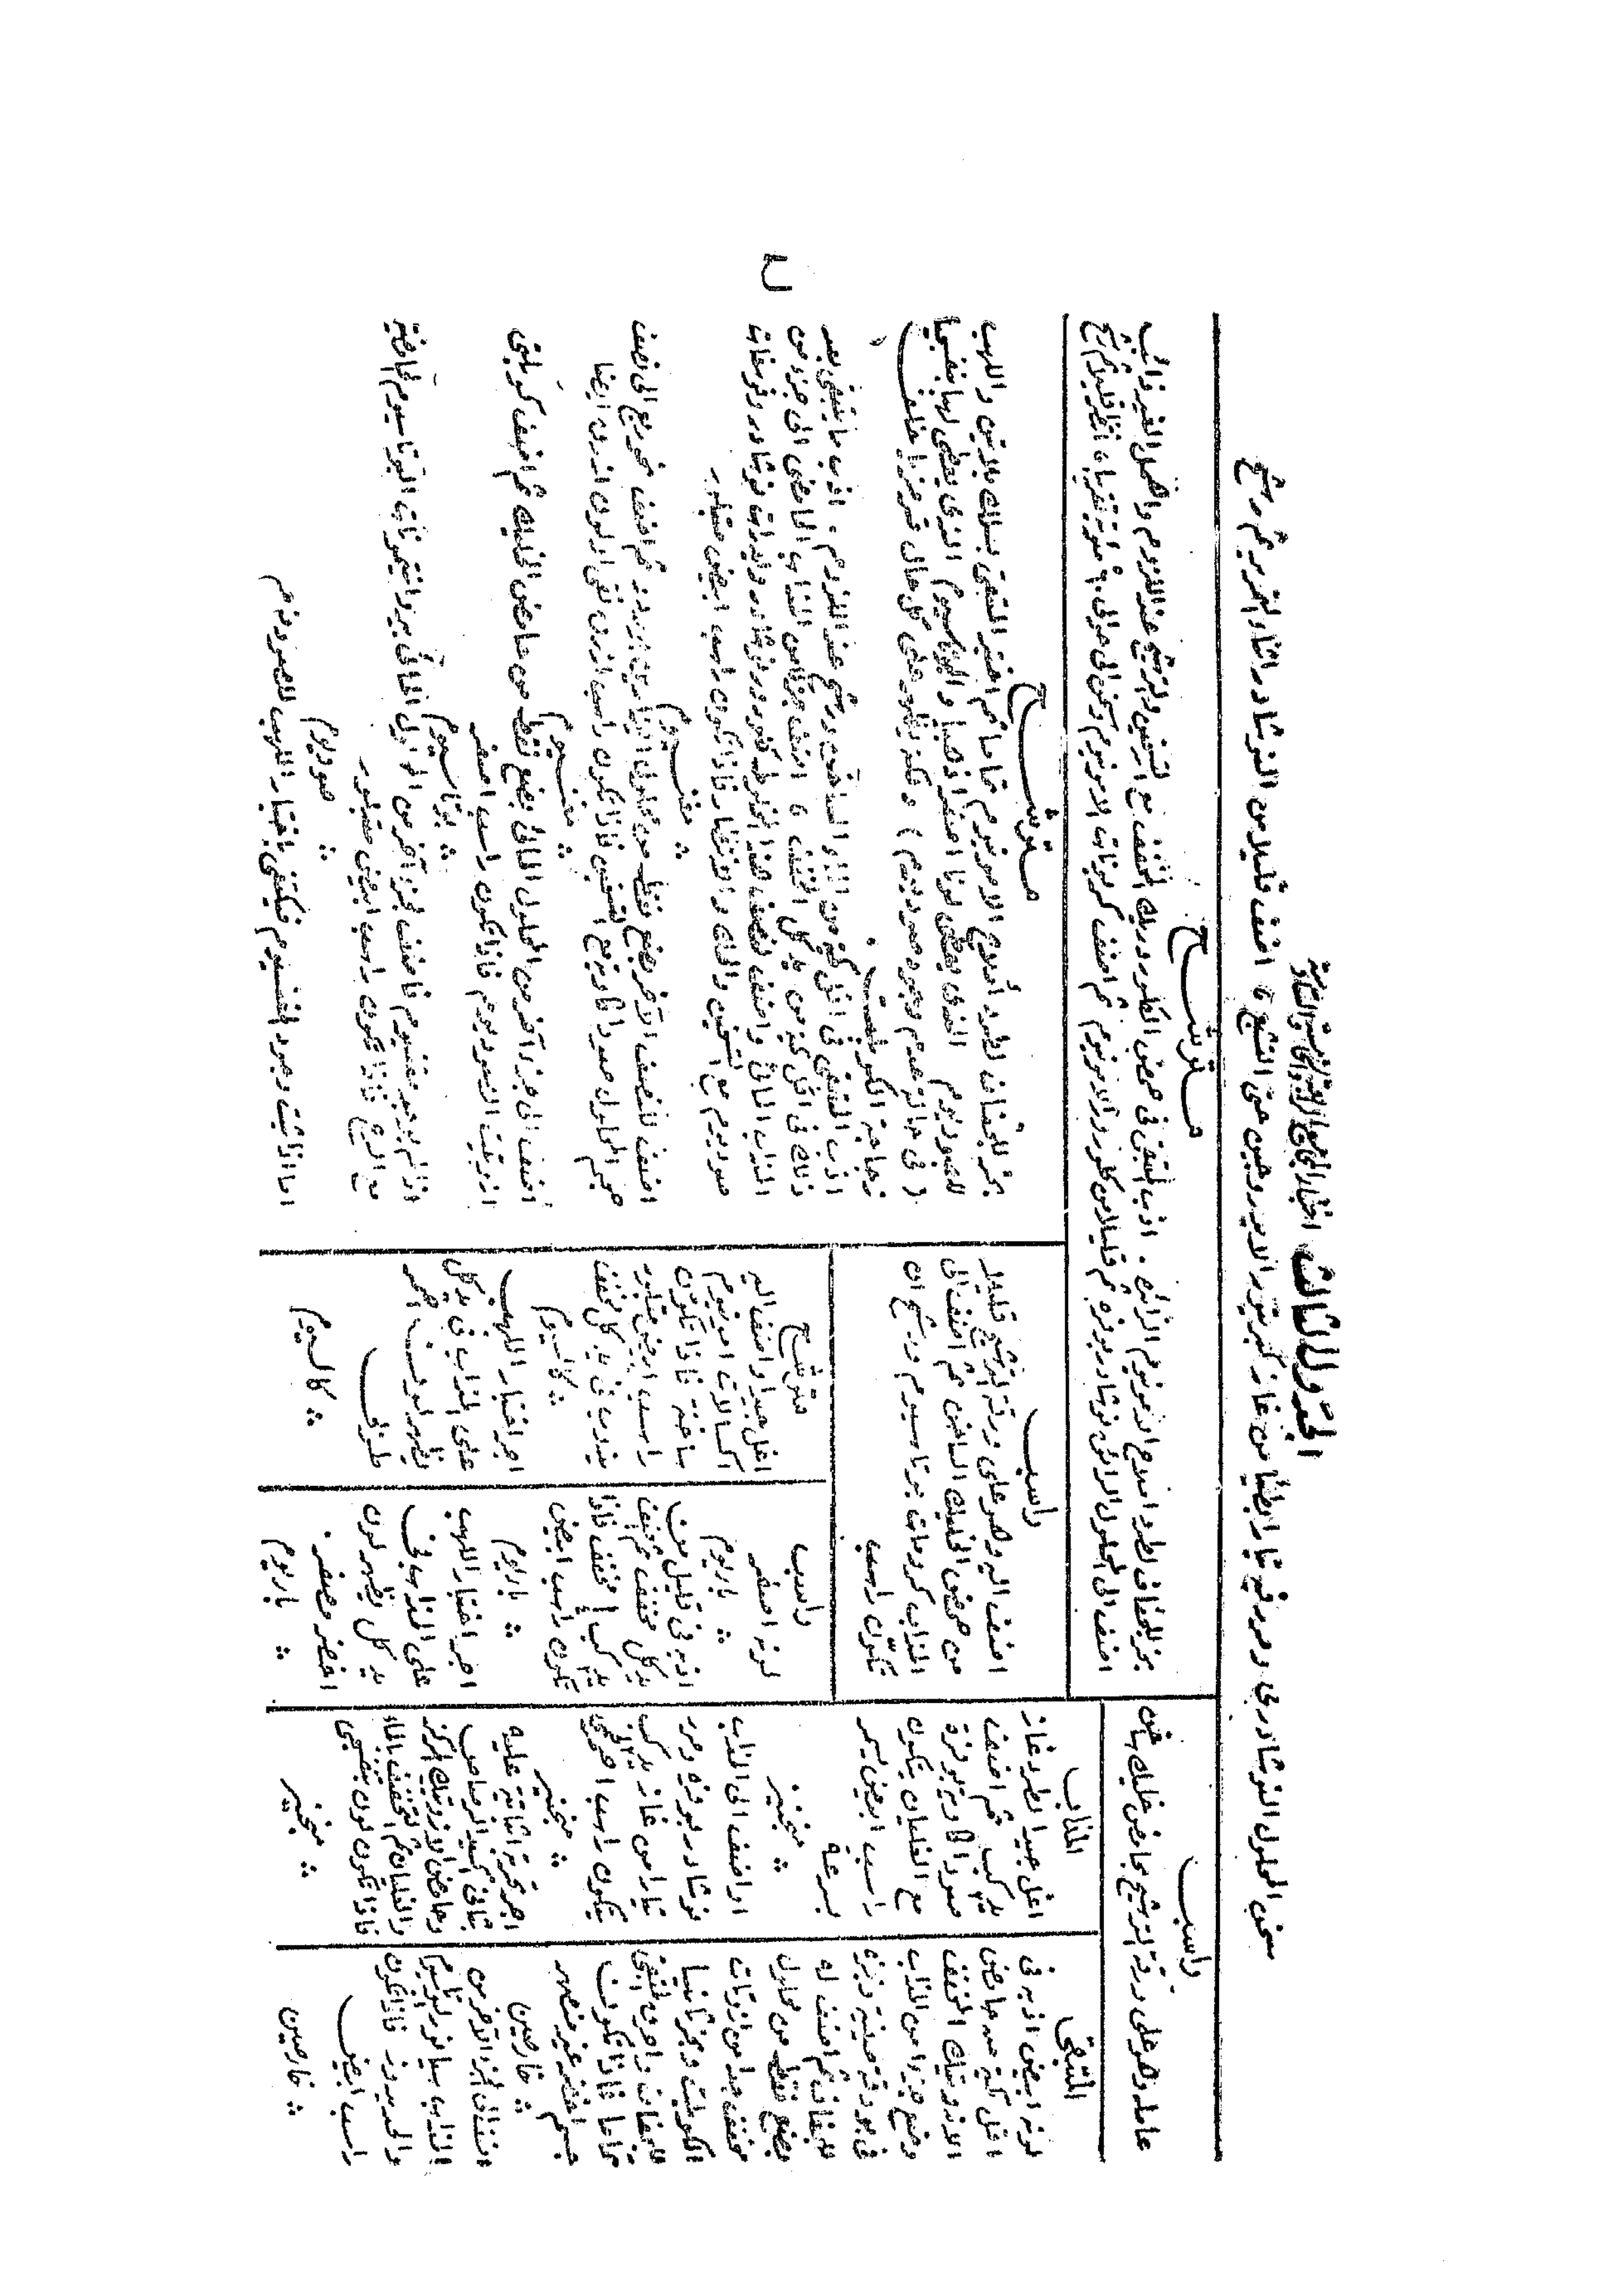 الجدول الثالث اختبار المجاميع الرابعة والخامسة والسادسة
سخن المحلول النوشادري ومرر فيه تيارا بطيئا من غاز كبريتور الايدروجين حتى التشبع ، اضف قليلا من النوشادر اثناء التمرير ثم رشح
راسب
عامله وهو على ورقة الترشيح بحامض خليك ساخن
المتبقى
لونه ابيض اذبه فى
اقل كمية من حامض
الازوتيك المخفف
وضع جزءا من المذاب
فى بودقة صينية وبخره
للجفاف ثم اضف له
بضع نقط من محلول
مخفف جدا من ازوتات
الكوبلت وبخر ثانيا
للجفاف واحرق المتبقى
تماما فاذا تكون
جسم اخضر غير منصهر
∴ خارصين
اضف الى الجزء الآخر من
المذاب سيانور البوتاسيوم
والحديدوز فاذا تكون
راسب ابيض
∴ خارصين
المذاب
اغل جيدا لطرد غاز
يد٢ كب ثم اضف
صودا كاوية بوفرة
مع الغليان يتكون
راسب ابيض يسمر
بسرعة
∴ منجنيز
او اضف الى المذاب
نوشادر بوفرة ومرر
تيارا من غاز يد٢ كب
يتكون راسب احمر لحمى
∴ منجنيز
اجر تجربة اثباتية عليه
بثانى اكسيد الرصاص
وحامض الازوتيك المركز
والغليان ثم التخفيف بالماء
فاذا تكون لون بنفسجى
∴ منجنيز
مترشح
بخر للجفاف لطرد املاح الامونيوم الزائدة . اذب المتبقى فى حمض الكلوردريك المخفف مع التسخين والترشيح عند اللزوم واهمل الغير ذائب
اضف الى المحلول الرائق نوشادر بوفرة ثم قليلا من كلورور الامونيوم ثم اضف كربونات الامونيوم وسخن الى حوالى ٦٠ مئوية تقريبا ، انتظر قليلا ثم رشح
راسب
اضف اليه وهو على ورقة الترشيح قليلا
من حمض الخليك الساخن ثم اضف الى
المذاب كرومات بوتاسيوم ورشح ان
تكوّن راسب
راسب
لونه اصفر
∴ باريوم
اذبه فى قليل من
يدكل مخفف ثم اضف
يد٢ كب أ٤ مخفف فاذا
تكون راسب ابيض
∴ باريوم
اجر اختبار اللهب
على المذاب فى
يدكل يظهر لون
اخضر مصفر .
∴ باريوم
مترشح
اغل جيدا واضف اليه
اكسالات امونيوم
ساخنة فاذا تكون
راسب ابيض متبلور
يذوب فى يدكل مخفف
∴ كالسيوم
اجر اختبار اللهب
على المذاب فى يدكل
يظهر لون احمر
طوبى
∴ كالسيوم
مترشح
بخر للجفاف لطرد أملاح الامونيوم تماما ثم اختبر المتبقى بسلك بلاتين واللهب
للصوديوم الذى يعطى لونا اصفرا ذهبيا والبوتاسيوم الذى يعطى لهبا بنفسجيا
( فى حالة عدم وجود صوديوم ) ولكنه يظهر على كل حال قرمزيا خلف
زجاجة الكوبلت .
اذب المتبقى فى اقل كمية من الماء الساخن ورشح عند اللزوم . اذب ما يتبقى بعد
ذلك فى اقل كمية من يدكل المخفف ، اضف جزءا من المذاب الحامضى الى جزء من
المذاب المائى واضف لنصف هذا المخلوط كلورور نوشادر وايدرات نوشادر وفوسفات
صوديوم مع التسخين والحك والانتظار فاذا تكون راسب ابيض متبلور
∴ مغنسيوم
اضف للنصف الآخر بضع نقط من محلول اليود فى يودور بوتاسيوم ثم اضف نحو ربع الى نصف
حجم المحلول صودا كاوية مع التسخين فاذا تكون راسب ازرق نقى او لون ازرق ايضا
∴ مغنسيوم
أضف الى جزء آخر من المحلول المائى بضع نقط من حامض الخليك ثم اضف كوبلتى
ازوتيت الصوديوم فاذا تكون راسب اصفر
∴ بوتاسيوم
اذا لم يوجد مغنسيوم فأضف لجزء آخر من المحلول المائى بيروانتيمونات البوتاسيوم الحامضية
مع الرج فاذا تكون راسب ابيض متبلور .
∴ صوديوم
اما اذا ثبت وجود المغنسيوم فيكتفى باختبار اللهب للصوديوم
ح